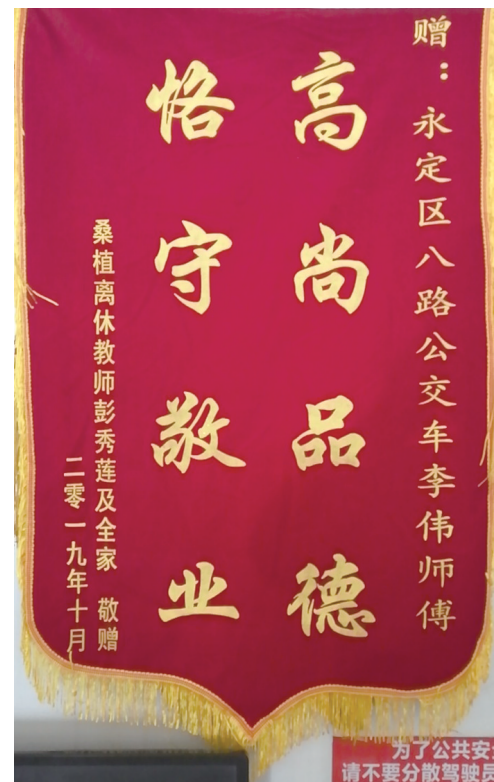 赠：永定区八路公交车李伟师傅
高尚品德
恪守敬业
桑植离休教师彭秀莲及全家 敬赠
二零一九年十月
为了公共安
请不要分散驾驶员